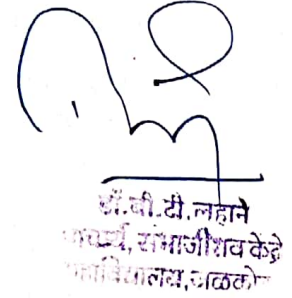 डॉ.बी.टी.लहाने
प्राचार्य, संभाजीराव केंद्रे
महाविद्यालय,जळकोट